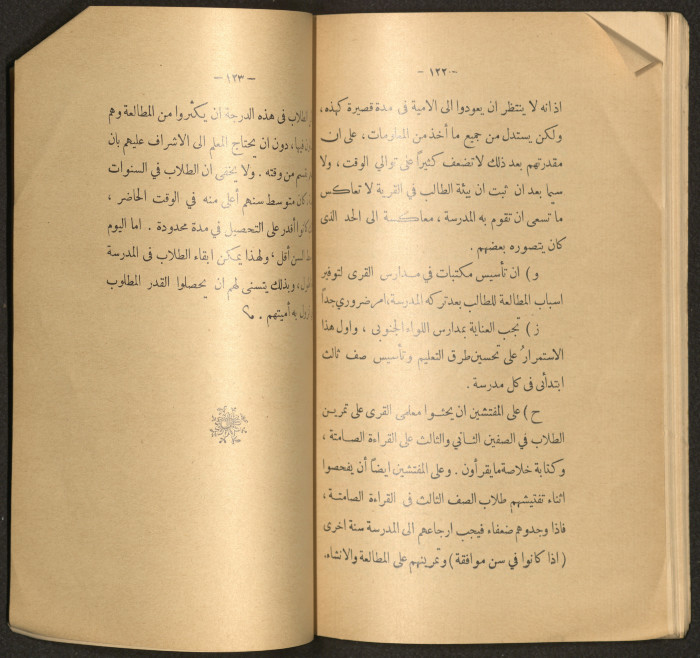 — ١٢٢ —
اذ انه لا ينتظر ان يعودوا الى الامية فى مدة قصيرة كهذه ،
ولكن يستدل من جميع ما أخذ من المعلومات ، على ان
مقدرتهم بعد ذلك لا تضعف كثيراً على توالي الوقت ، ولا
سيما بعد ان ثبت ان بيئة الطالب فى القرية لا تعاكس
ما تسعى ان تقوم به المدرسة ، معاكسة الى الحد الذى
كان يتصوره بعضهم .
و ) ان تأسيس مكتبات في مدارس القرى لتوفير
اسباب المطالعة للطالب بعد تركه المدرسة ، امر ضروري جداً
ز ) تجب العناية بمدارس اللواء الجنوبى ، واول هذا
الاستمرارُ على تحسين طرق التعليم وتأسيس صف ثالث
ابتدأئى فى كل مدرسة .
ح ) على المفتشين ان يحثوا معلمى القرى على تمرين
الطلاب في الصفين الثاني والثالث على القراءة الصامتة ،
وكتابة خلاصة ما يقرأون . وعلى المفتشين ايضاً أن يفحصوا
اثناء تفتيشهم طلاب الصف الثالث فى القراءة الصامتة ،
فاذا وجدوهم ضعفاء فيجب ارجاعهم الى المدرسة سنة اخرى
( اذا كانوا في سن موافقة ) وتمرينهم على المطالعة والانشاء.
— ١٢٣ —
الطلاب فى هذه الدرجة ان يكثروا من المطالعة وهم
فيها ، دون ان يحتاج المعلم الى الاشراف عليهم بان
من وقته . ولا يخفى ان الطلاب في السنوات
كان متوسط سنهم أعلى منه في الوقت الحاضر ،
كانوا أقدر على التحصيل في مدة محدودة . اما اليوم
السن أقل ، ولهذا يمكن ابقاء الطلاب فى المدرسة
، وبذلك يتسنى لهم ان يحصلوا القدر المطلوب
به أميتهم .